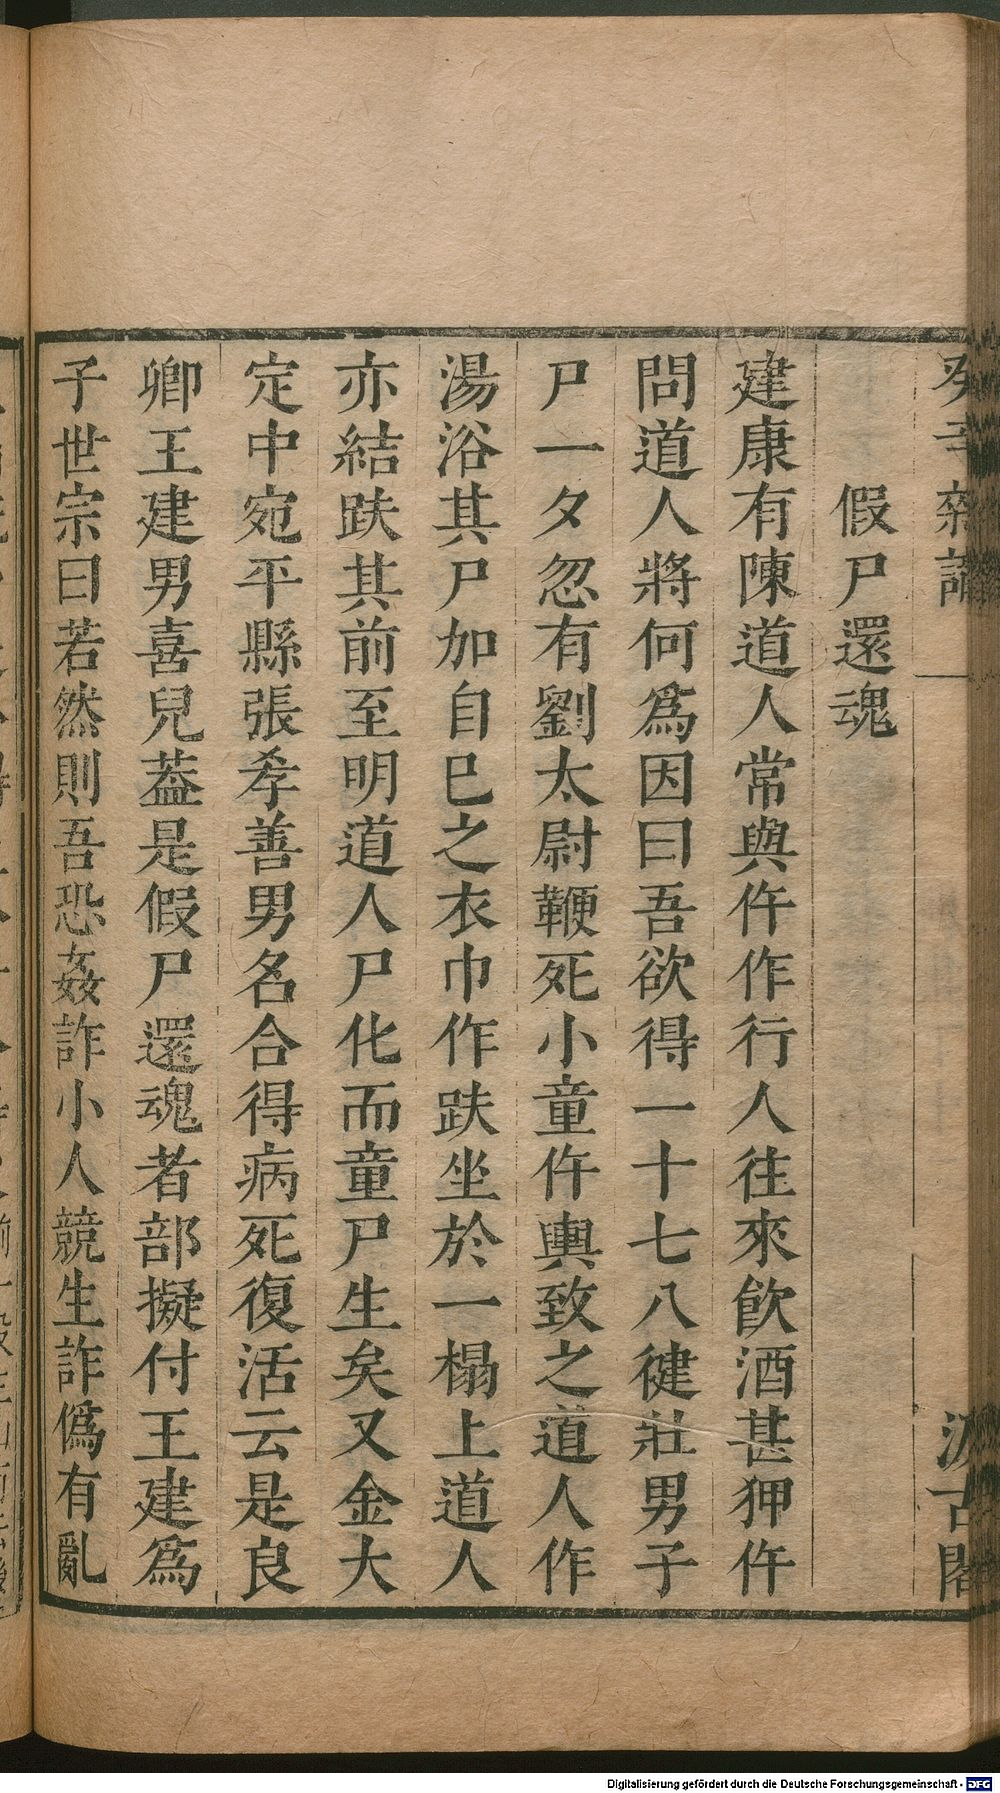 假尸還魂
建康有陳道人常與仵作行人往來飲酒甚狎仵
問道人將何爲因曰吾欲得一十七八健壯男子
尸一夕忽有劉太尉鞭死小童仵輿致之道人作
湯浴其尸加自巳之衣巾作趺坐於一榻上道人
亦結趺其前至明道人尸化而童尸生矣又金大
定中宛平縣張孝善男名合得病死復活云是良
卿王建男喜兒葢是假尸還魂者部擬付王建爲
子世宗曰若然則吾恐姦詐小人競生詐僞有亂
汲古閣
Digitalisierung gefördert durch die Deutsche Forschungsgemeinschaft - DFG